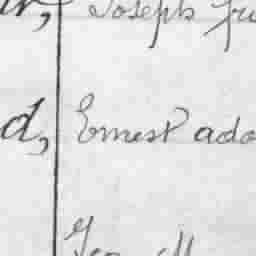 r, Joseph fr
d, Ernest ado
Geo. M